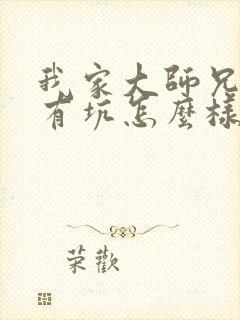 我家大師兄
有坑怎麼樣
荣歡